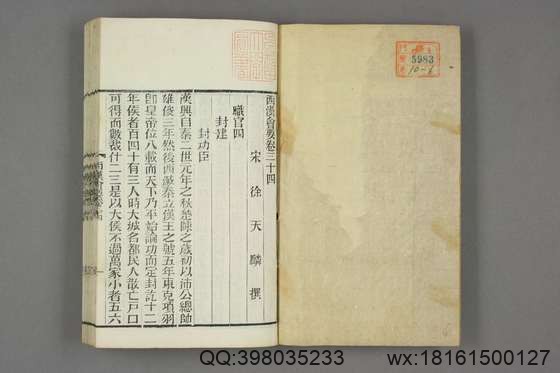 西漢會要卷三十四
宋徐天麟撰
職官四
封建
封功臣
漢興自秦二世元年之秋楚陳之歲初以沛公總帥
雄俊三年然後西滅秦立漢王之號五年東克項羽
即皇帝位八載而天下乃平始論功而定封訖十二
年侯者百四十有三人時大城名都民人散亡戶口
可得而數裁什二三是以大侯不過萬家小者五六
5983
10-6
QQ:398035233
wx:18161500127